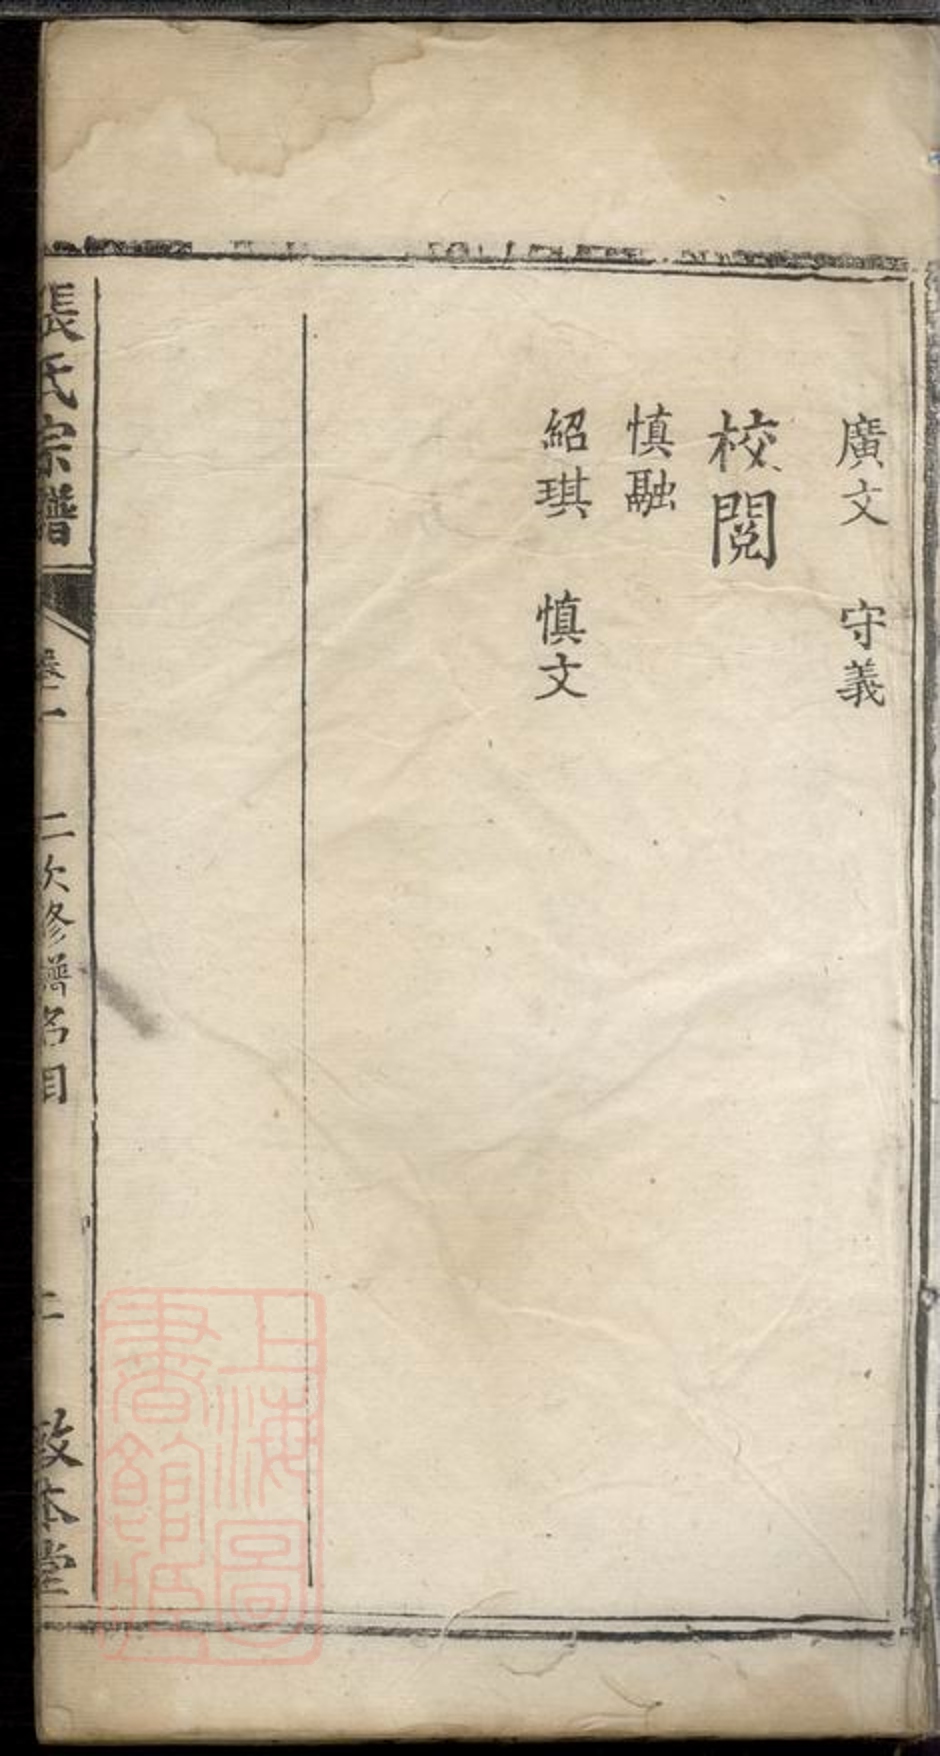 廣文 守義
校閱
慎融
紹琪 慎文
張氏宗譜 卷一 二次修譜名目 二 敦本堂
上海圖書館藏